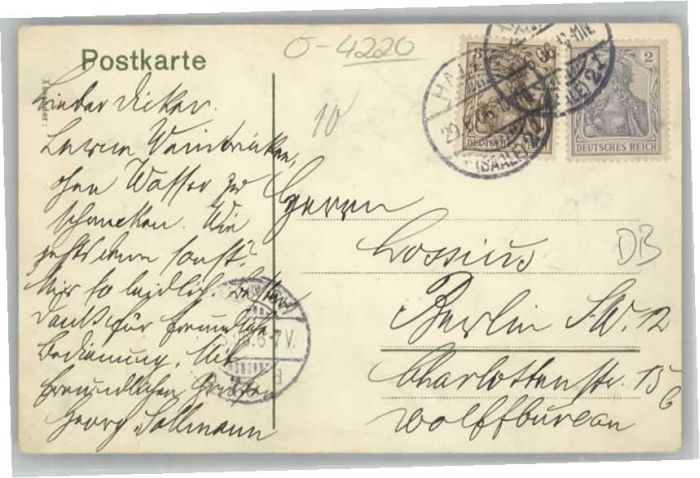 O-4220
Postkarte
HALLE
(SAALE)
2
DEUTSCHES REICH
DEUTSCHES REICH
10
Lieber Dicker.
Lerne Weintrinken,
ohne Wasser zu
schmecken. Wie
gehts denn sonst?
Mir so leidlich. Besten
Dank für freundliche
Bedienung. Mit
freundlichen Grüßen
Georg Sollmann
Herrn
Lossius
DB
Berlin S.W. 12
Charlottenstr. 15
6
Wolffbureau